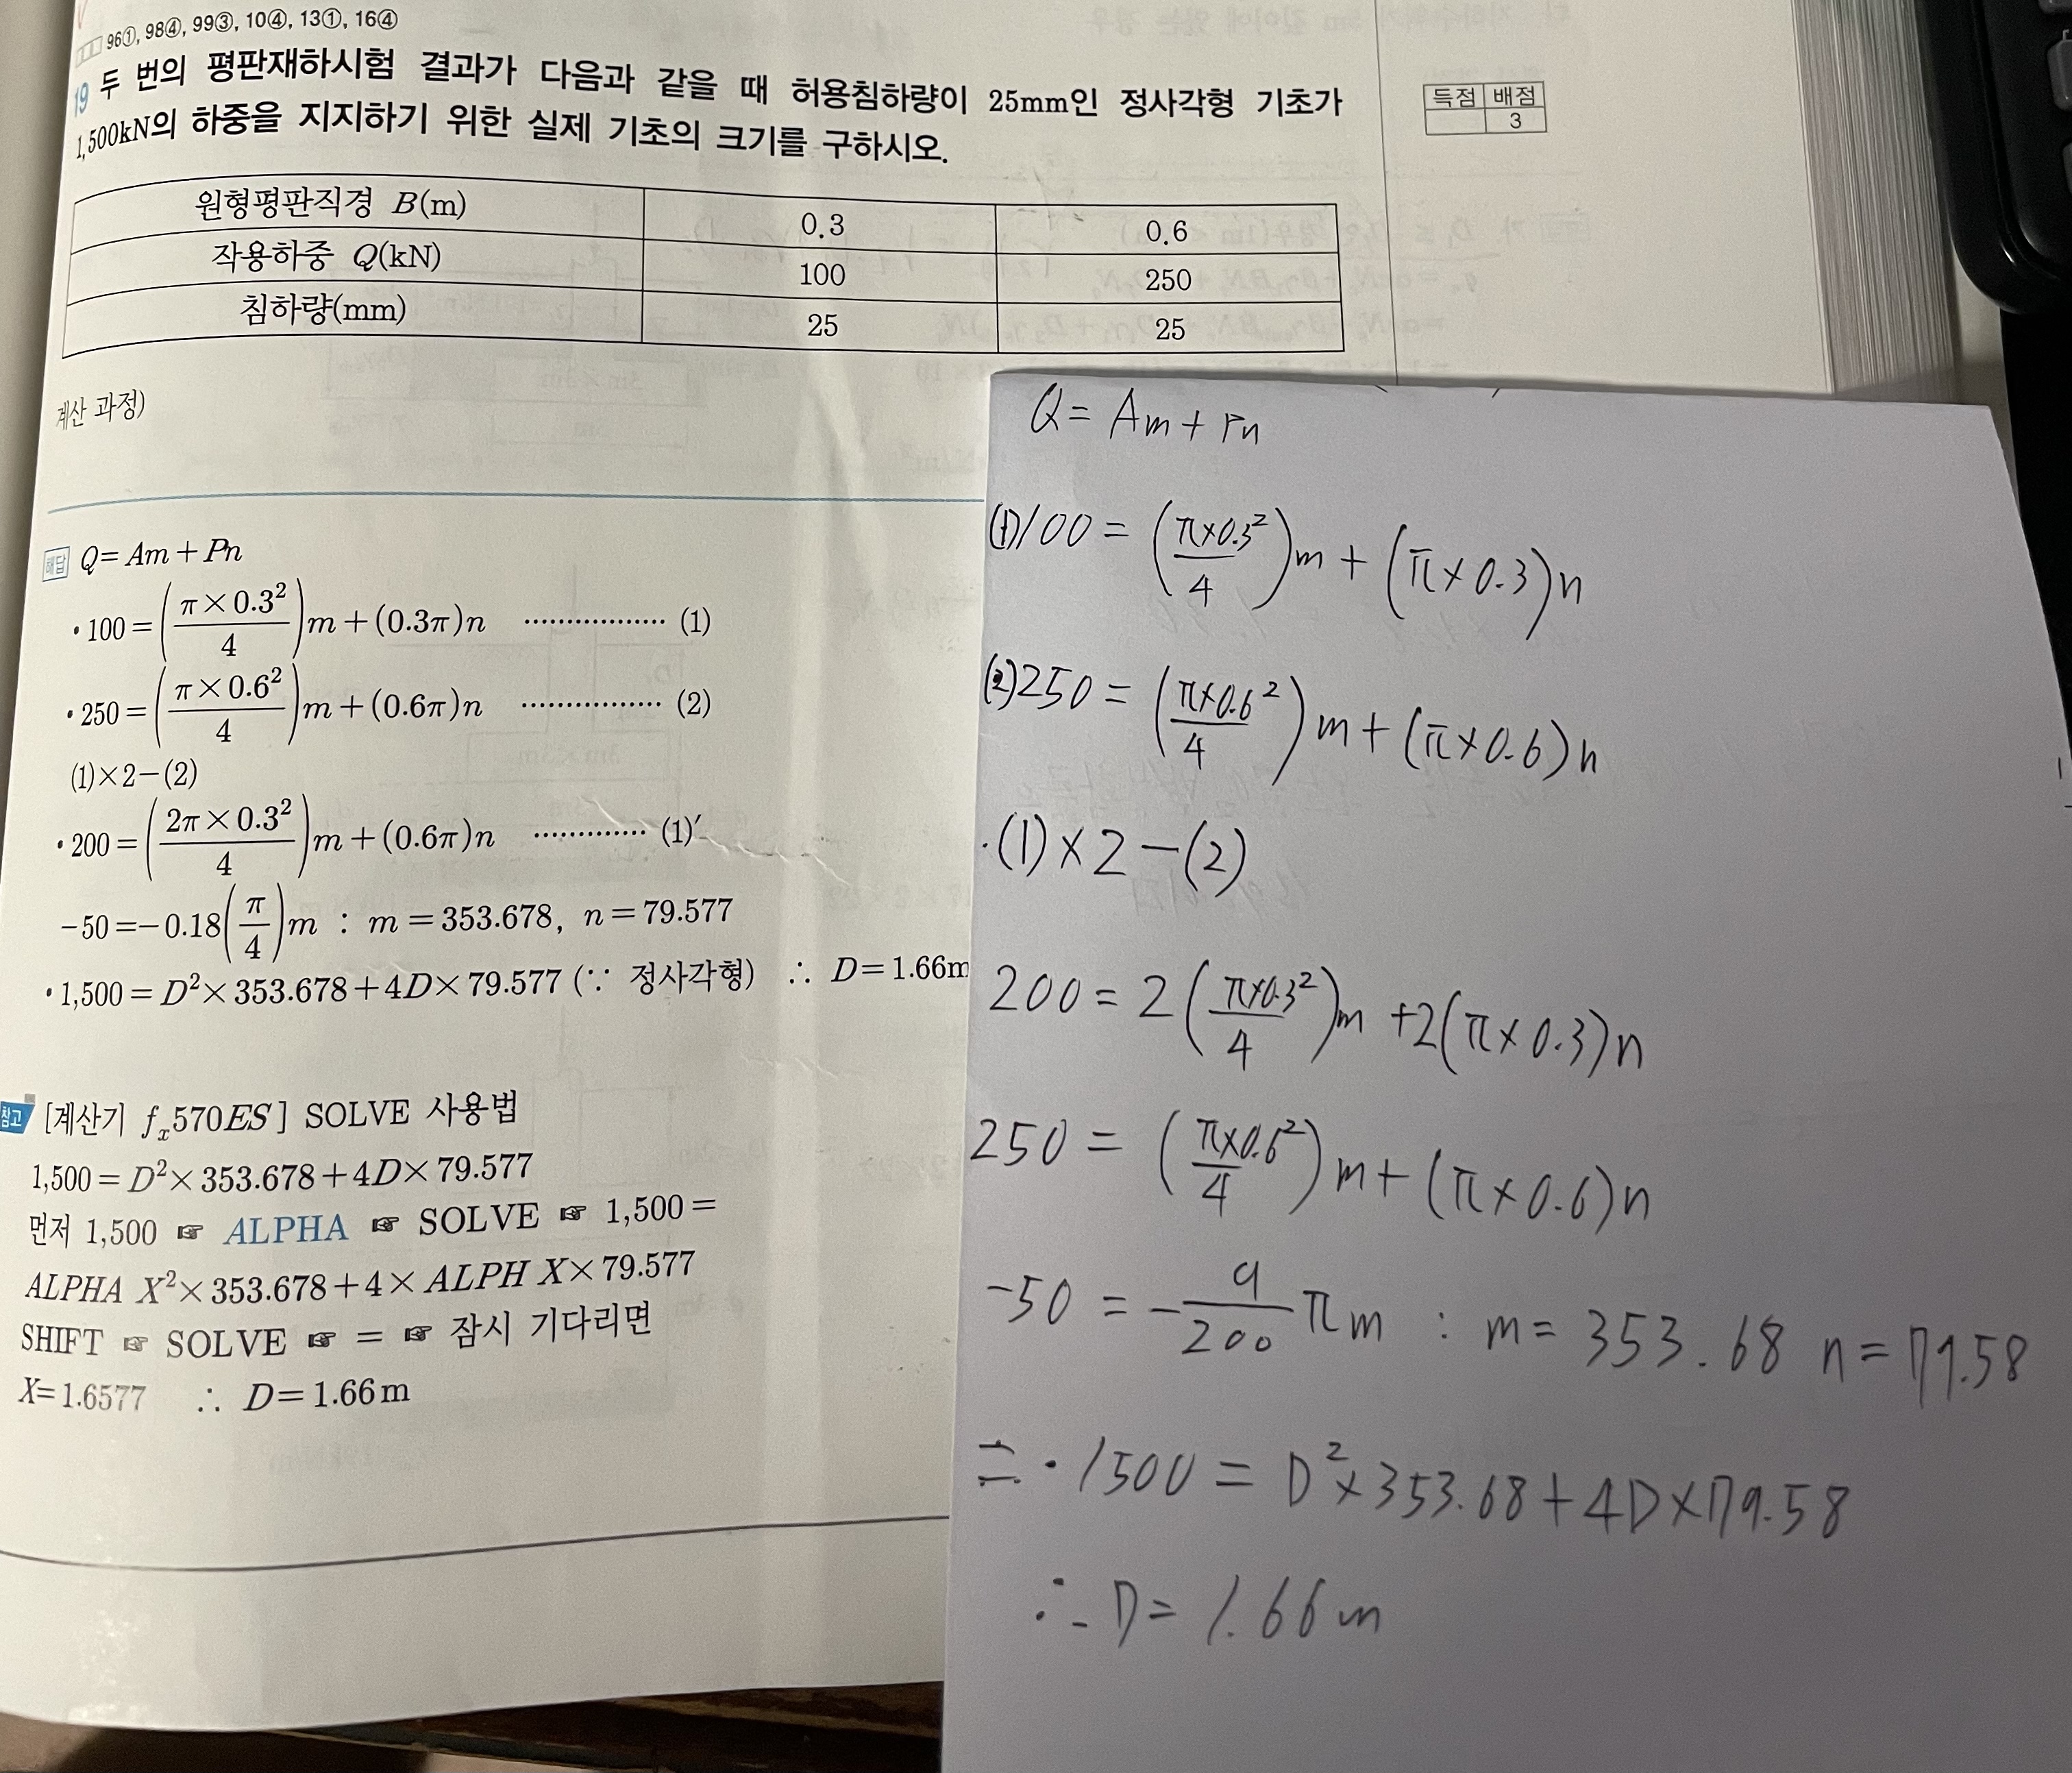 96①, 98④, 99③, 10④, 13①, 16④
19 두 번의 평판재하시험 결과가 다음과 같을 때 허용침하량이 25mm인 정사각형 기초가
1,500kN의 하중을 지지하기 위한 실제 기초의 크기를 구하시오.
득점 배점
3
원형평판직경 B(m) 0.3 0.6
작용하중 Q(kN) 100 250
침하량(mm) 25 25
계산 과정)
해답 Q=Am+Pn
•100=(π×0.3²/4)m+(0.3π)n ················· (1)
•250=(π×0.6²/4)m+(0.6π)n ················· (2)
(1)×2−(2)
•200=(2π×0.3²/4)m+(0.6π)n ············· (1)′
−50=−0.18(π/4)m : m=353.678, n=79.577
•1,500=D²×353.678+4D×79.577 (∵ 정사각형) ∴ D=1.66m
참고 [계산기 fx570ES] SOLVE 사용법
1,500=D²×353.678+4D×79.577
먼저 1,500 ☞ ALPHA ☞ SOLVE ☞ 1,500=
ALPHA X²×353.678+4×ALPH X×79.577
SHIFT ☞ SOLVE ☞ = ☞ 잠시 기다리면
X=1.6577 ∴ D=1.66m
Q= Am+Pn
(1)100 = (π×0.3²/4)m + (π×0.3)n
(2)250 = (π×0.6²/4)m + (π×0.6)n
·(1)×2−(2)
200 = 2(π×0.3²/4)m +2(π×0.3)n
250 = (π×0.6²/4)m + (π×0.6)n
−50 = −9/200 πm : m= 353.68 n=79.58
=·1500 = D²×353.68+4D×79.58
∴ D= 1.66m